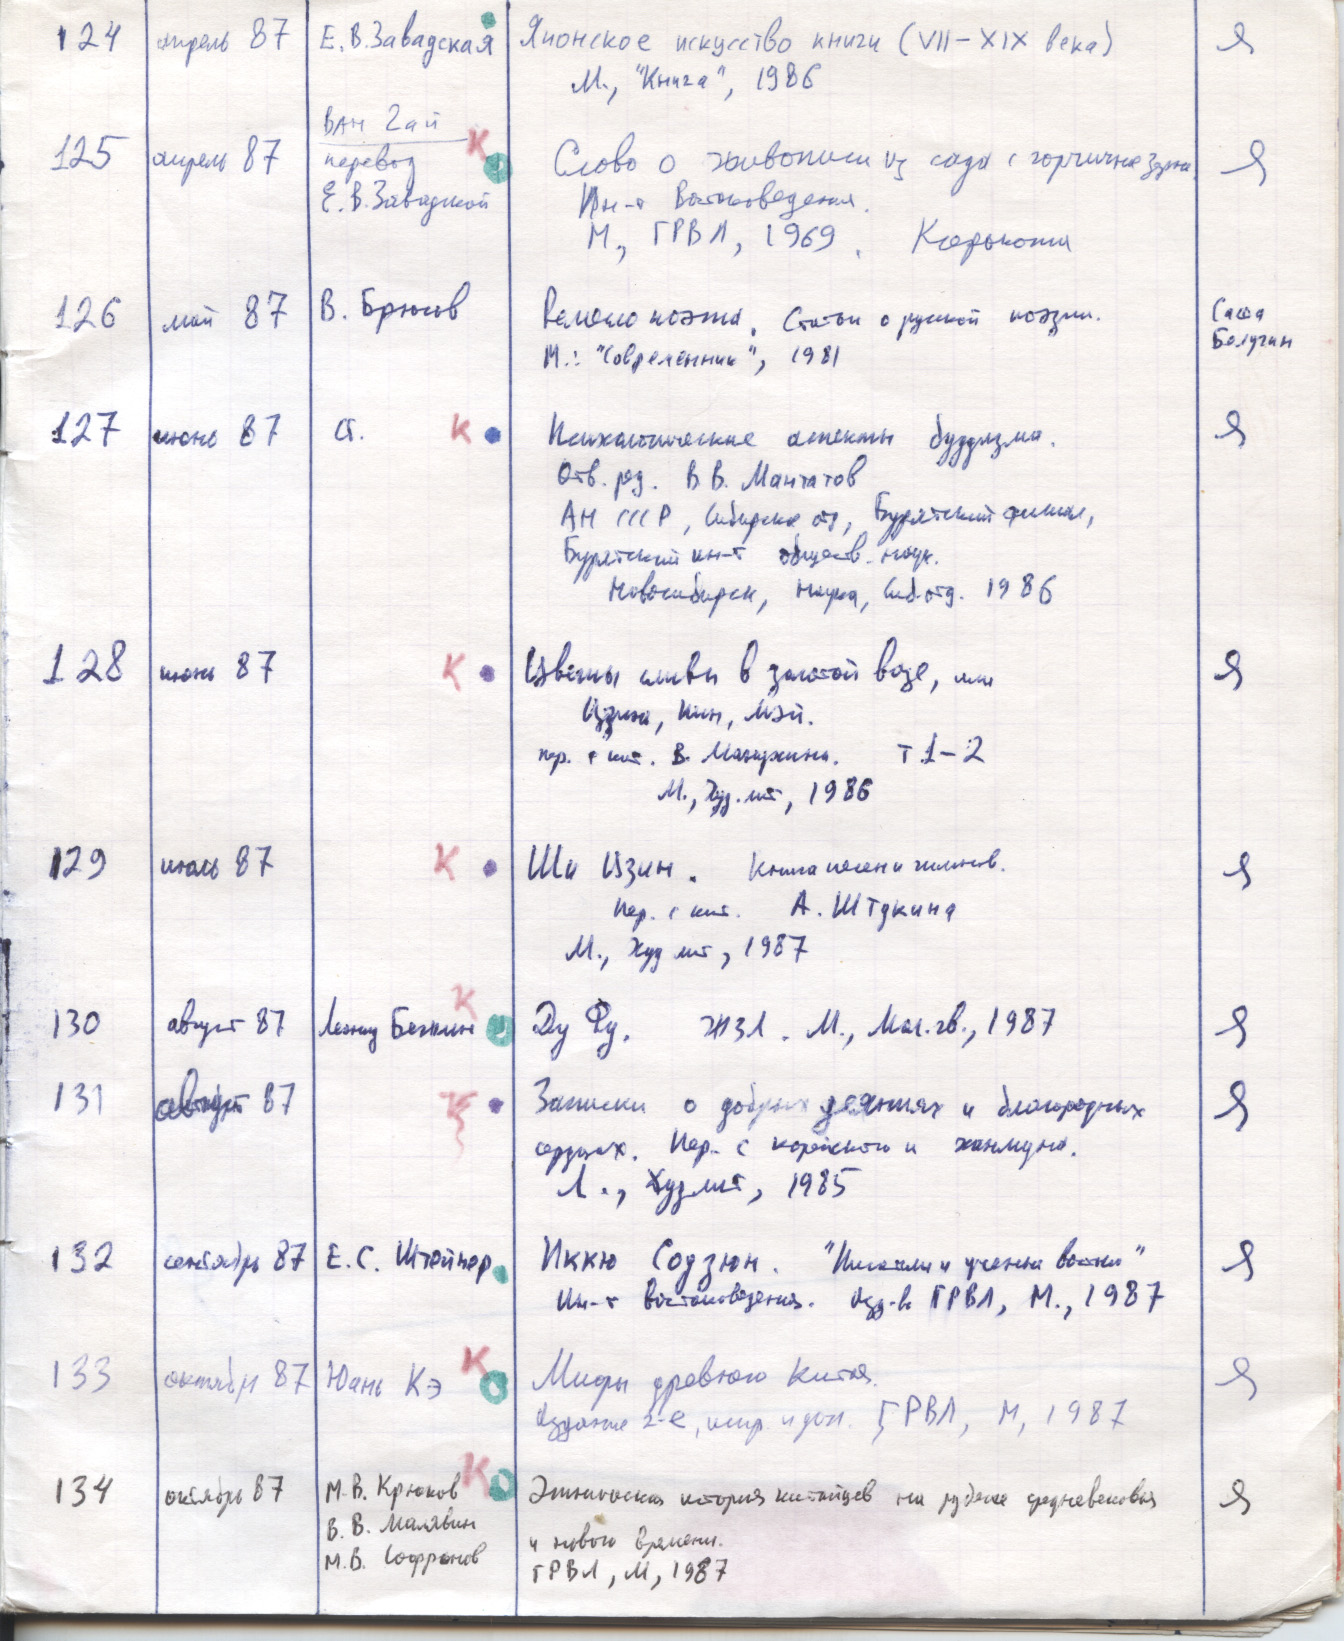 124 апрель 87 Е.В.Завадская Японское искусство книги (VII-XIX века) Я
М., "Книга", 1986
Ван Гай
125 апрель 87 перевод К Слово о живописи из сада с горчичное зерно, Я
Е.В.Завадской Ин-т Востоковедения.
М., ГРВЛ, 1969.
126 май 87 В. Брюсов Ремесло поэта. Статьи о русской поэзии. Саша
М.: "Современник", 1981 Белугин
127 июнь 87 ст. К Психологические аспекты буддизма. Я
Отв. ред. В.В. Мантатов
АН СССР, Сибирское от, Бурятский филиал,
Бурятский ин-т обществ. наук.
Новосибирск, Наука, Сиб. отд. 1986
128 июнь 87 К Цветы сливы в золотой вазе, или Я
Цзинь, Пин, Мэй.
пер. с кит. В. Манухина. т 1-2
М., Худ. лит, 1986
129 июль 87 К Ши Цзин. Книга песен и гимнов. Я
Пер. с кит. А. Штукина
М., Худ лит, 1987
К
130 август 87 Леонид Бежин Ду Фу. ЖЗЛ. М., Мол. гв., 1987 Я
131 август 87 К Записки о добрых деяниях и благородных Я
сердцах. Пер. с корейского и ханмуна.
Л., Худ лит, 1985
132 сентябрь 87 Е.С. Штейнер Иккю Содзюн. "Писатели и ученые востока" Я
Ин-т Востоковедения. Изд-во ГРВЛ, М., 1987
133 октябрь 87 Юань Кэ К Мифы древнего Китая. Я
Издание 2-е, испр. и доп. ГРВЛ, М, 1987
134 октябрь 87 М.В. Крюков К Этническая история китайцев на рубеже средневековья Я
В.В. Малявин и нового времени.
М.В. Софронов ГРВЛ, М, 1987